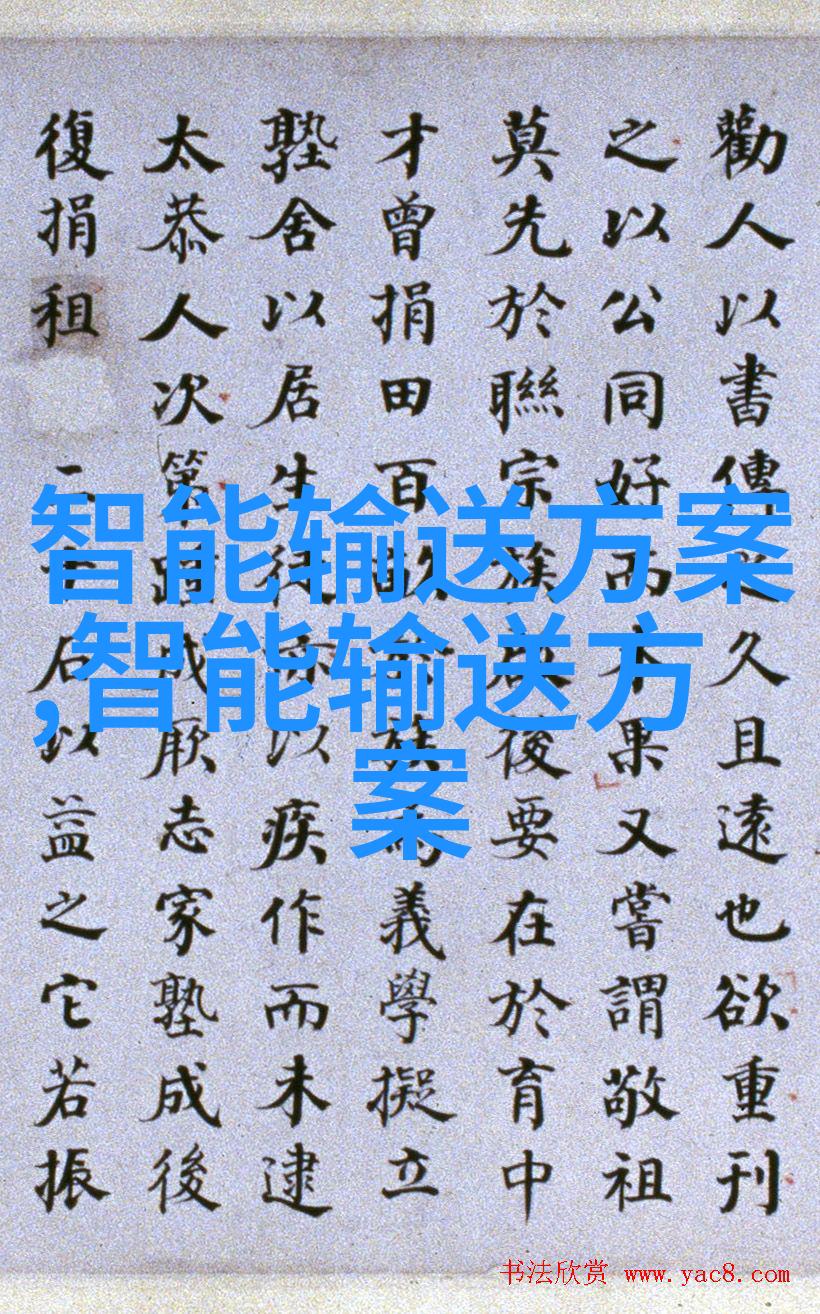 勸人以書傳之久且遠也欲重刊
之以公同好而未果又嘗謂敬祖
莫先於聯宗族後要在於育中
才曾捐田百畝族為義學擬立
塾舍以居生徒以疾作而未逮
太恭人次第踵成厥志家塾成後
復捐租二千石以益之它若振
智能输送方案
,智能输送方
案
书法欣赏 www.yac8.com